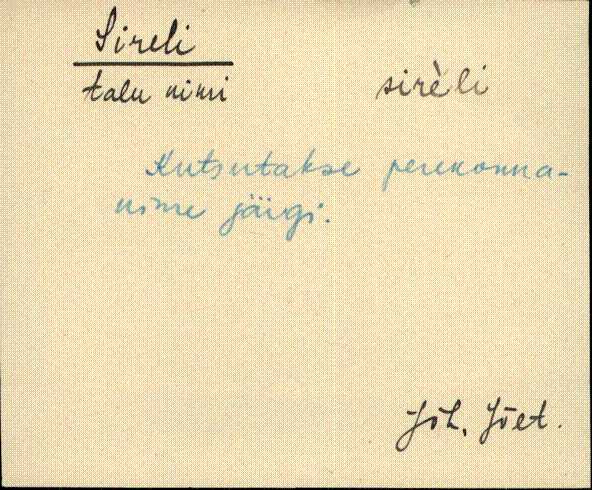 Sireli
talu nimi sirèli
Kutsutakse perekonna-
nime järgi.
Jõh, Jõet.